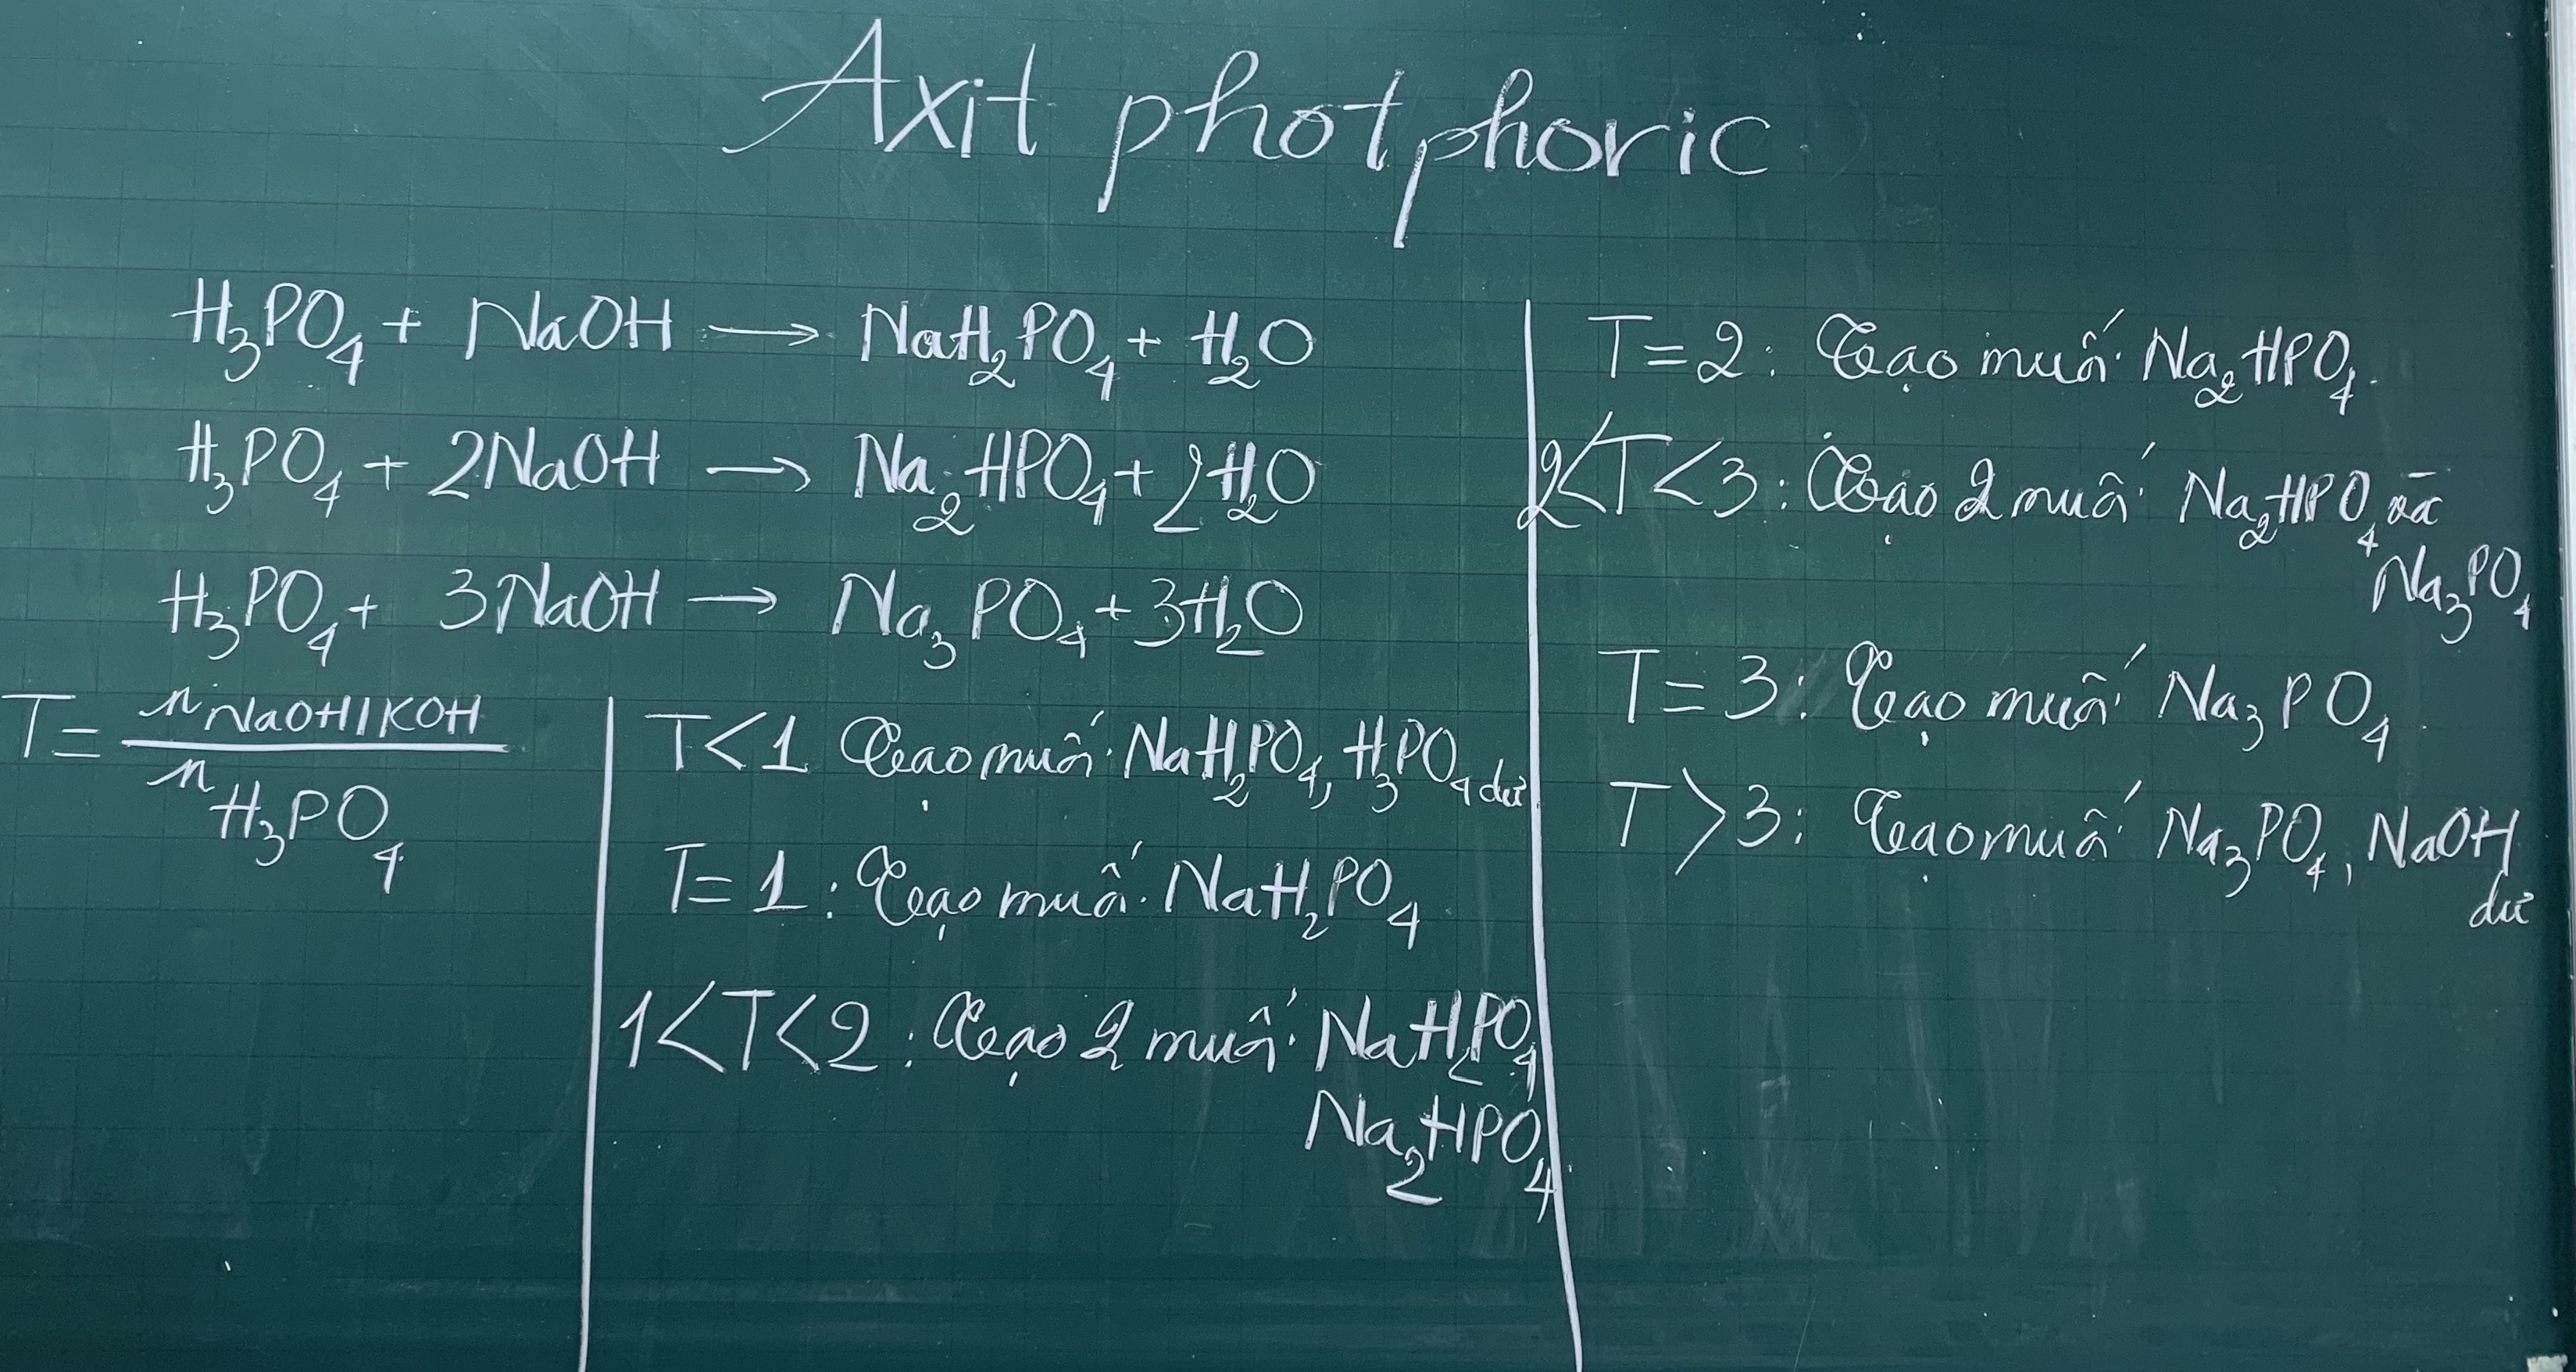 Axit photphoric
H₃PO₄ + NaOH → NaH₂PO₄ + H₂O
H₃PO₄ + 2NaOH → Na₂HPO₄ + 2H₂O
H₃PO₄ + 3NaOH → Na₃PO₄ + 3H₂O
T = n NaOH/KOH
n H₃PO₄
T < 1 Tạo muối NaH₂PO₄, H₃PO₄ dư
T = 1 : Tạo muối NaH₂PO₄
1 < T < 2 : Tạo 2 muối NaH₂PO₄
Na₂HPO₄
T = 2 : Tạo muối Na₂HPO₄.
2 < T < 3 : Tạo 2 muối Na₂HPO₄ và
Na₃PO₄
T = 3 : Tạo muối Na₃PO₄
T > 3 : Tạo muối Na₃PO₄, NaOH
dư